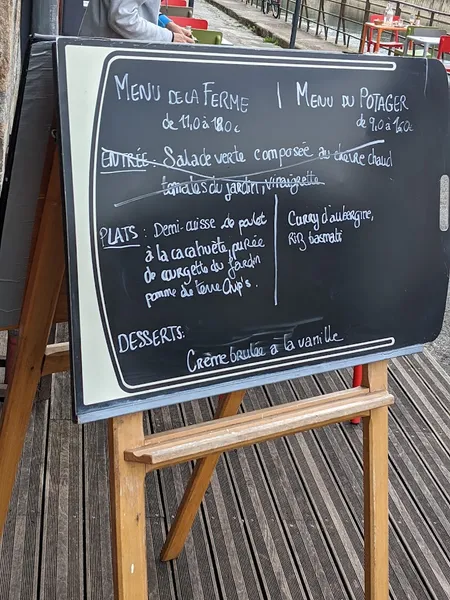 MENU DE LA FERME | MENU DU POTAGER
de 11,0 à 18,0€ de 9,0 à 16,0€
ENTRÉE : Salade verte composée au chèvre chaud
tomates du jardin, vinaigrette
PLATS : Demi-cuisse de poulet
à la cacahuète, purée
de courgette du jardin
pomme de terre Chip's.
Curry d'aubergine,
Riz basmati
DESSERTS:
Crème brulée à la vanille